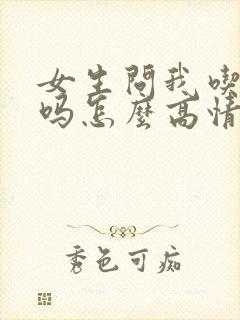 女生問我喫
吗怎麼高情
秀色可痴